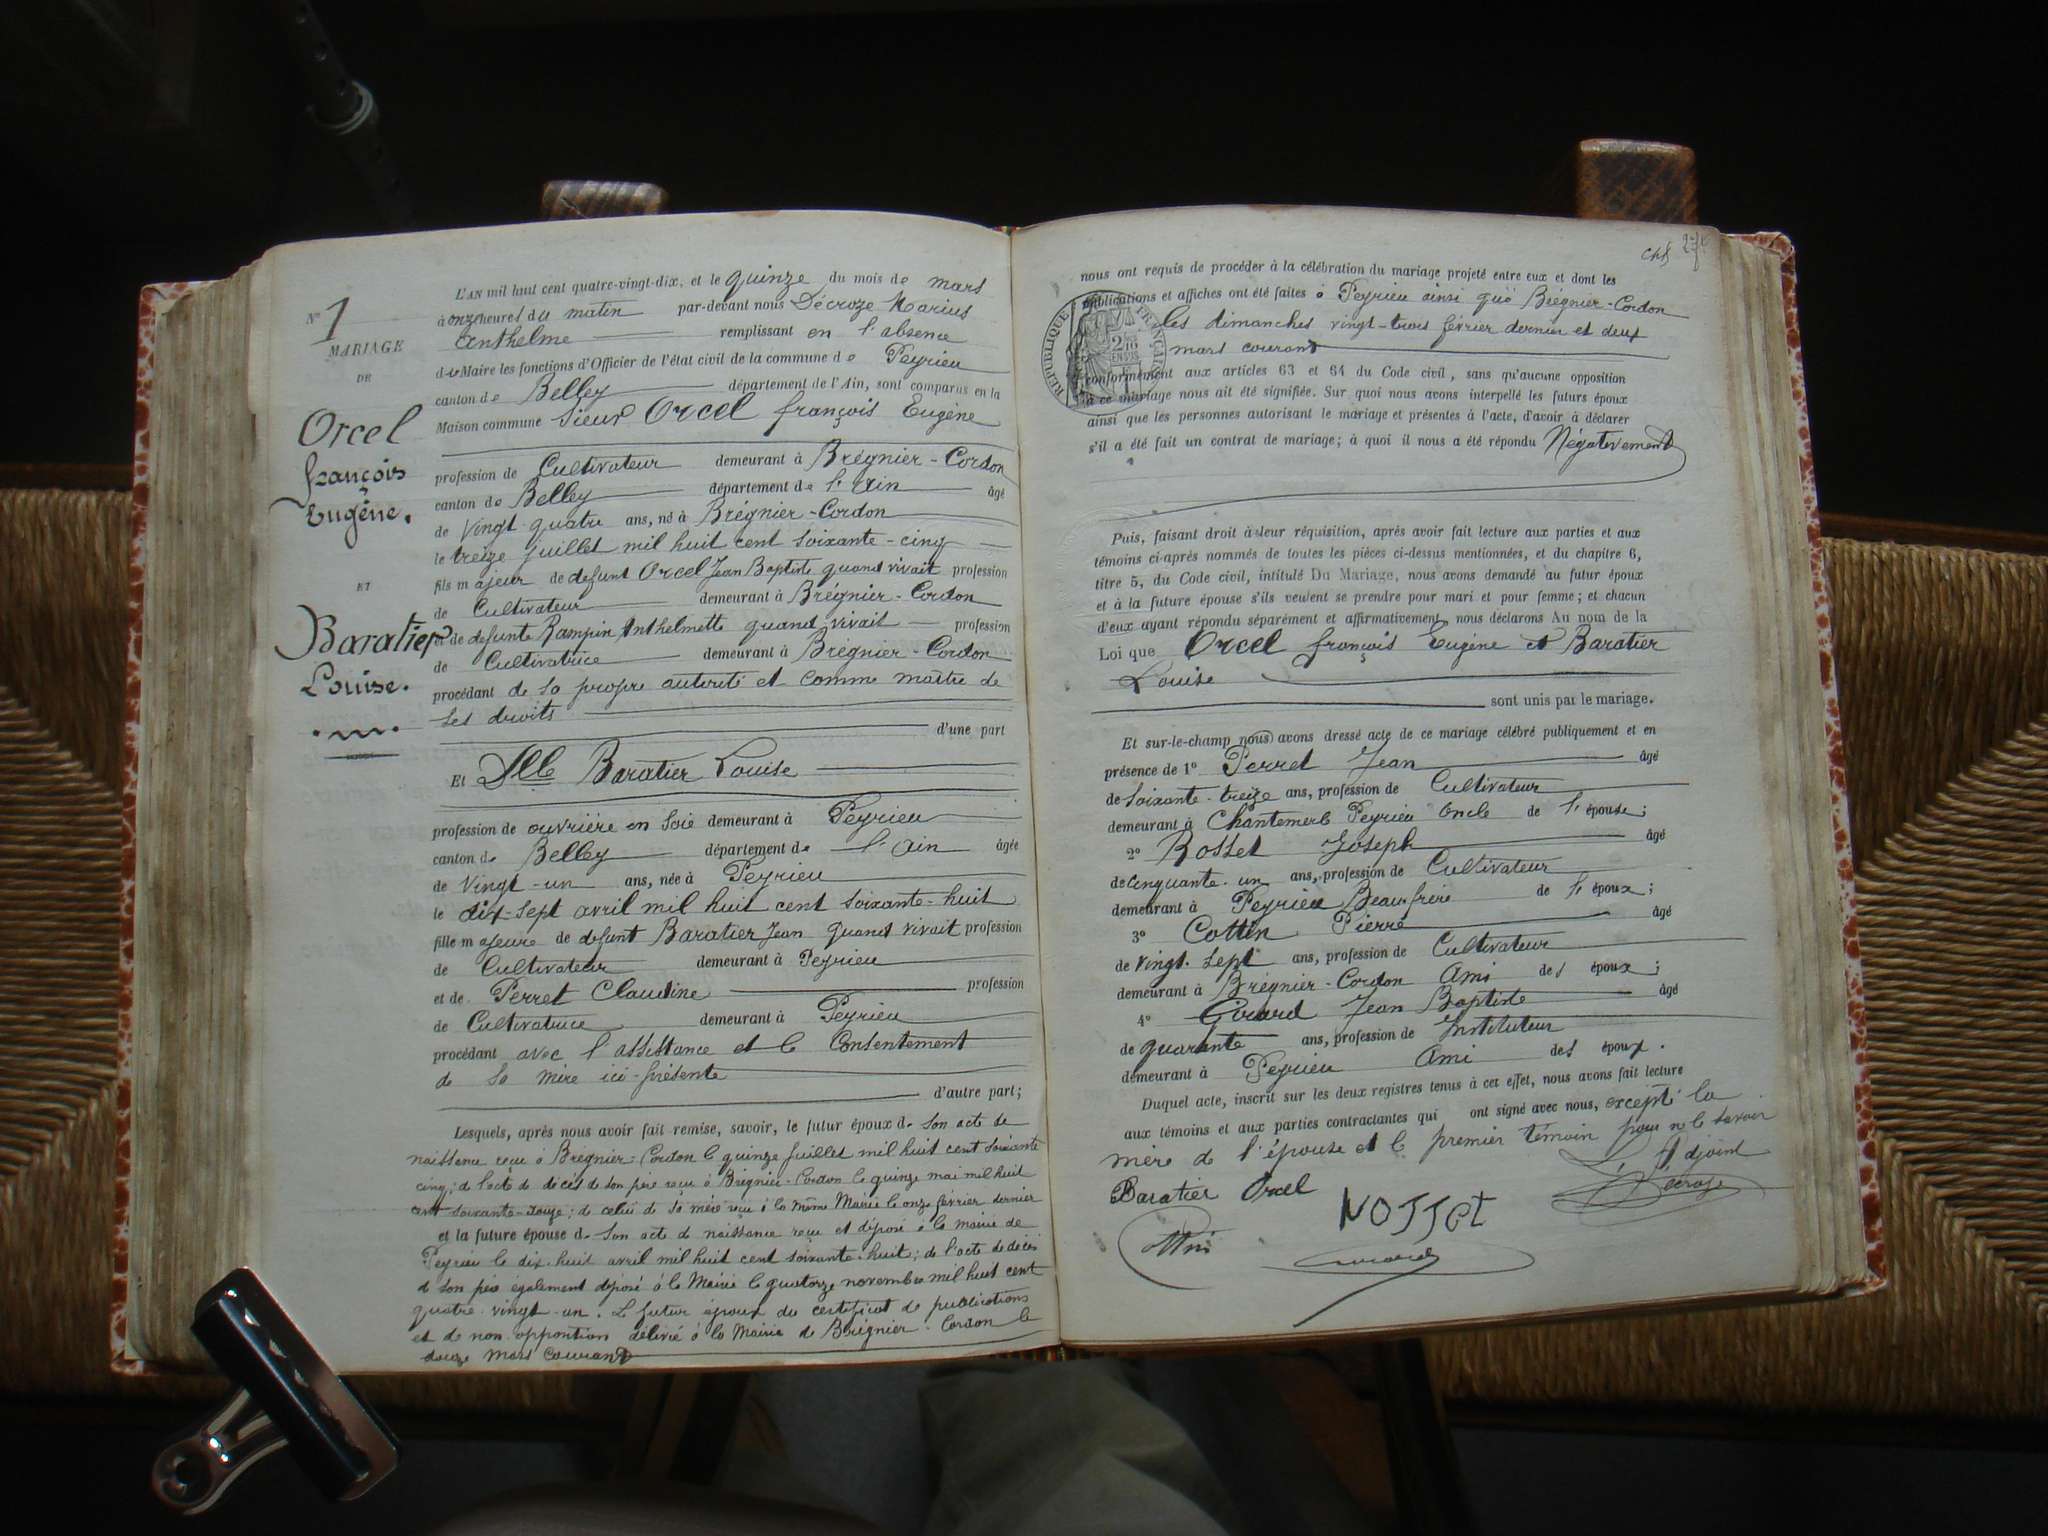 N° 1
MARIAGE
DE
Orcel
françois
Eugène.
ET
Baratier
Louise.
L'AN mil huit cent quatre-vingt-dix, et le quinze du mois de mars
à onze heures du matin par-devant nous Décroze Marius
Anthelme remplissant en l'absence
du Maire les fonctions d'Officier de l'état civil de la commune de Peyrieu
canton de Belley département de l'Ain, sont comparus en la
Maison commune Sieur Orcel françois Eugène
profession de Cultivateur demeurant à Brégnier-Cordon
canton de Belley département de l'Ain âgé
de vingt quatre ans, né à Brégnier-Cordon
le treize juillet mil huit cent soixante-cinq
fils majeur de defunt Orcel Jean Baptiste quand vivait profession
de Cultivateur demeurant à Brégnier-Cordon
et de defunte Rampin Anthelmette quand vivait profession
de Cultivatrice demeurant à Brégnier-Cordon
procédant de sa propre autorité et comme maître de
ses droits
d'une part
Et Dlle Baratier Louise
profession de ouvrière en soie demeurant à Peyrieu
canton de Belley département de l'Ain âgée
de vingt-un ans, née à Peyrieu
le dix-sept avril mil huit cent soixante-huit
fille majeure de defunt Baratier Jean quand vivait profession
de Cultivateur demeurant à Peyrieu
et de Perret Claudine profession
de Cultivatrice demeurant à Peyrieu
procédant avec l'assistance et le Consentement
de sa mère ici-présente
d'autre part;
Lesquels, après nous avoir fait remise, savoir, le futur époux de son acte de
naissance reçu à Brégnier-Cordon le quinze juillet mil huit cent soixante
cinq; de l'acte de décès de son père reçu à Brégnier-Cordon le quinze mai mil huit
cent soixante-douze; de celui de sa mère reçu à la même Mairie le onze février dernier
et la future épouse de son acte de naissance reçu et déposé à la mairie de
Peyrieu le dix-huit avril mil huit cent soixante-huit; de l'acte de décès
de son père également déposé à la Mairie le quatorze novembre mil huit cent
quatre-vingt-un. Le futur époux du certificat de publications
et de non opposition délivré à la Mairie de Brégnier-Cordon le
douze mars courant
nous ont requis de procéder à la célébration du mariage projeté entre eux et dont les
publications et affiches ont été faites à Peyrieu ainsi que Brégnier-Cordon
les dimanches vingt-trois février dernier et deux
mars courant
RÉPUBLIQUE FRANÇAISE
conformément aux articles 63 et 64 du Code civil, sans qu'aucune opposition
à ce mariage nous ait été signifiée. Sur quoi nous avons interpellé les futurs époux
ainsi que les personnes autorisant le mariage et présentes à l'acte, d'avoir à déclarer
s'il a été fait un contrat de mariage; à quoi il nous a été répondu Négativement
Puis, faisant droit à leur réquisition, après avoir fait lecture aux parties et aux
témoins ci-après nommés de toutes les pièces ci-dessus mentionnées, et du chapitre 6,
titre 5, du Code civil, intitulé Du Mariage, nous avons demandé au futur époux
et à la future épouse s'ils veulent se prendre pour mari et pour femme; et chacun
d'eux ayant répondu séparément et affirmativement, nous déclarons Au nom de la
Loi que Orcel françois Eugène et Baratier
Louise
sont unis par le mariage.
Et sur-le-champ nous avons dressé acte de ce mariage célébré publiquement et en
présence de 1° Perret Jean âgé
de soixante-treize ans, profession de Cultivateur
demeurant à Chantemerle Peyrieu oncle de l'épouse;
2° Rosset Joseph âgé
de cinquante-un ans, profession de Cultivateur
demeurant à Peyrieu Beau frère de l'époux;
3° Cottin Pierre âgé
de vingt-sept ans, profession de Cultivateur
demeurant à Brégnier-Cordon Ami des époux;
4° Girard Jean Baptiste âgé
de quarante ans, profession de Instituteur
demeurant à Peyrieu Ami des époux.
Duquel acte, inscrit sur les deux registres tenus à cet effet, nous avons fait lecture
aux témoins et aux parties contractantes qui ont signé avec nous, excepté la
mère de l'épouse et le premier témoin pour ne le savoir
L'Adjoint
Baratier Orcel
Décroze